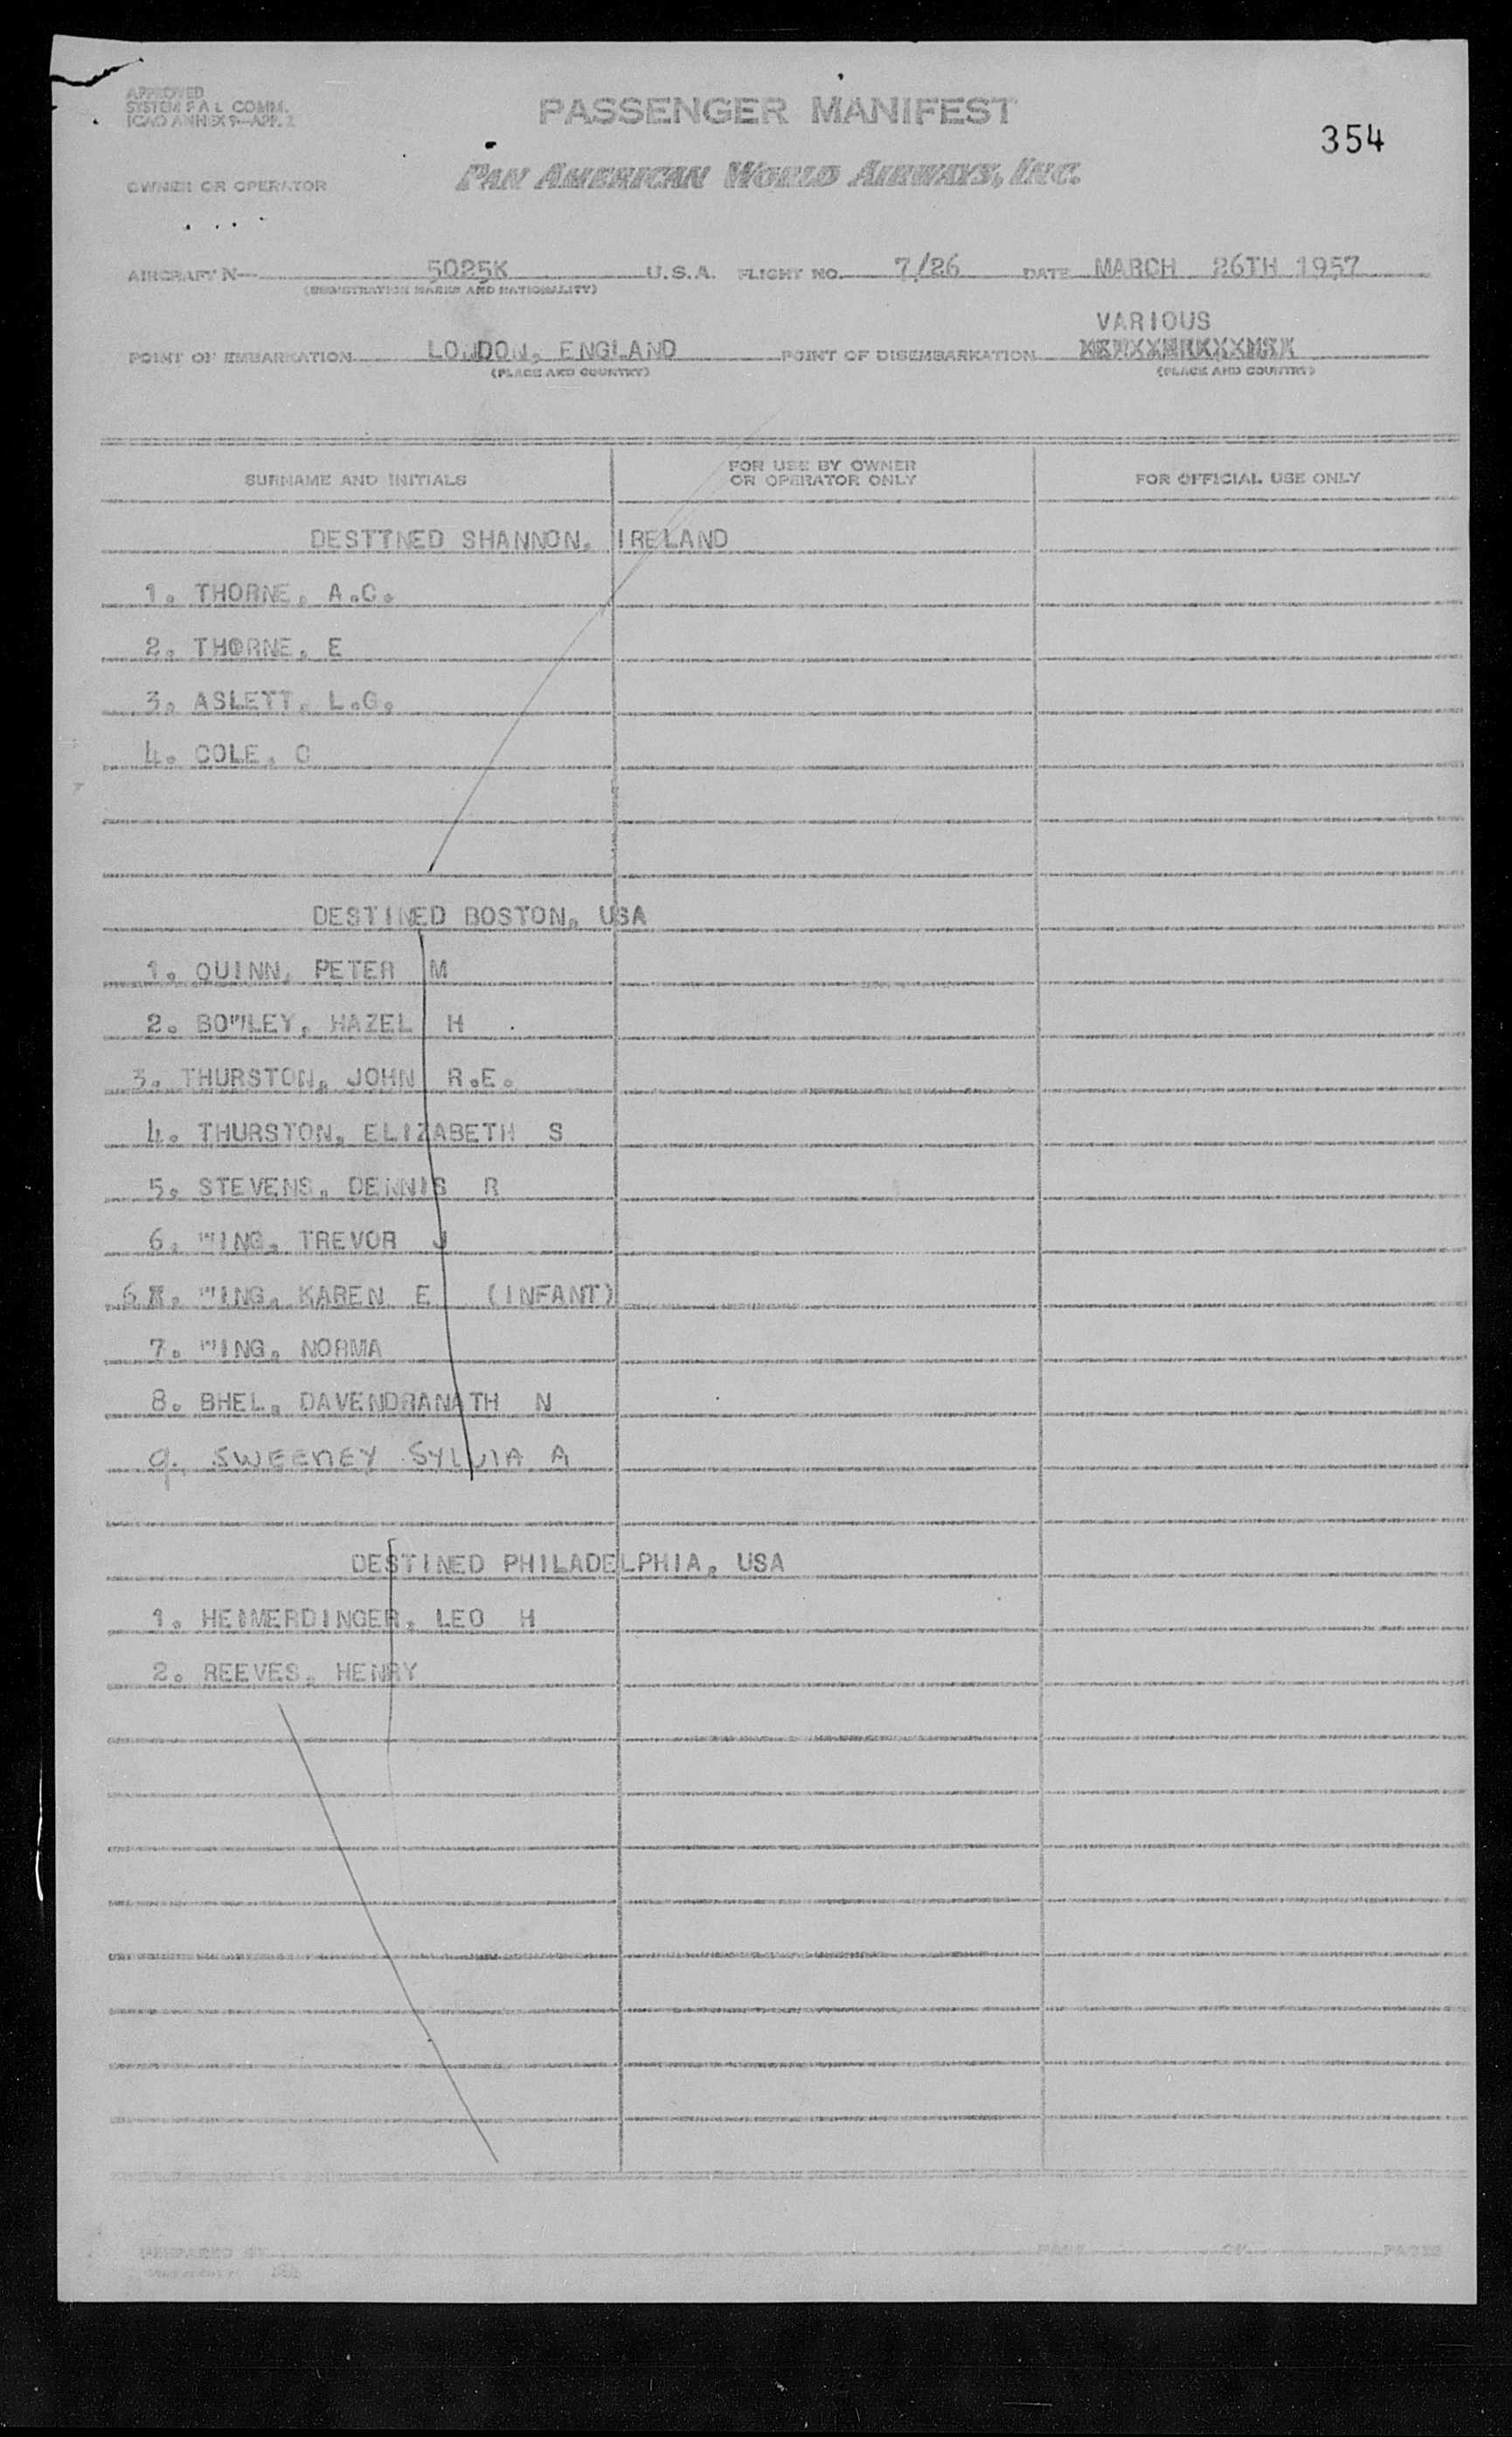 APPROVED
SYSTEM F A L COMM.
ICAO ANNEX 9—APP. 2
PASSENGER MANIFEST
354
PAN AMERICAN WORLD AIRWAYS, INC.
OWNER OR OPERATOR
AIRCRAFT N— 5025K U.S.A. FLIGHT NO. 7/26 DATE MARCH 26TH 1957
(REGISTRATION MARKS AND NATIONALITY)
VARIOUS
POINT OF EMBARKATION LONDON, ENGLAND POINT OF DISEMBARKATION
(PLACE AND COUNTRY) (PLACE AND COUNTRY)
SURNAME AND INITIALS FOR USE BY OWNER OR OPERATOR ONLY FOR OFFICIAL USE ONLY
DESTTNED SHANNON, IRELAND
1. THORNE, A.C.
2. THORNE, E
3. ASLETT, L.G.
4. COLE, C
DESTINED BOSTON, USA
1. QUINN, PETER M
2. BOWLEY, HAZEL H
3. THURSTON, JOHN R.E.
4. THURSTON, ELIZABETH S
5. STEVENS, DENNIS R
6. WING, TREVOR J
6. WING, KAREN E (INFANT)
7. WING, NORMA
8. BHEL, DAVENDRANATH N
9. SWEENEY SYLVIA A
DESTINED PHILADELPHIA, USA
1. HEIMERDINGER, LEO H
2. REEVES, HENRY
PREPARED BY PAGE OF PAGES